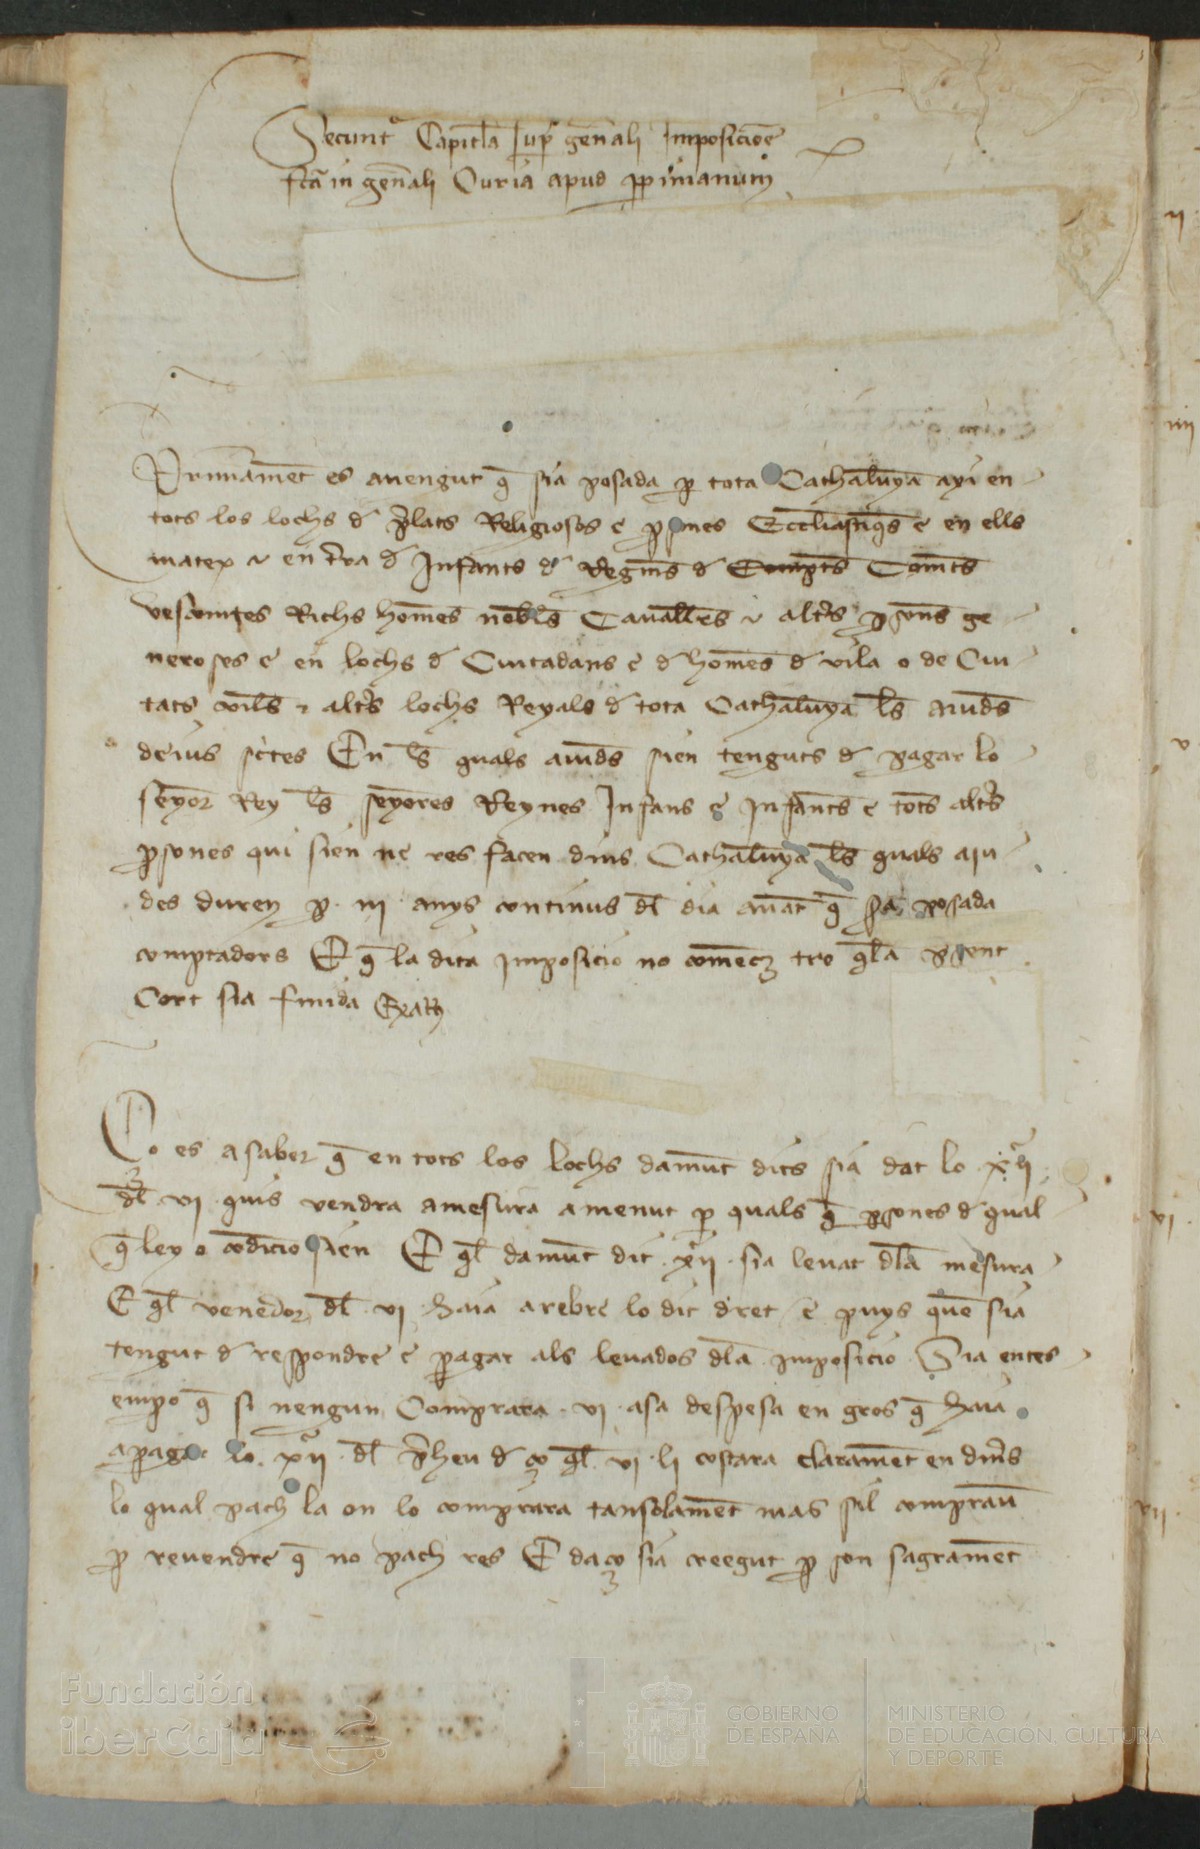 Secunt͛ Capitl̄a sup̄ gen̄ali Imposicioē
fc̄a in gen̄ali Curia apud ꝑpinianum
Primament es auengut q̄ sia posada ꝑ tota Cathal̄uya axi en
tots los lochs đ p̄lats Religiosos e ꝑsones Eccl̄iastiq̄s e en ells
matex ⁊ en t̄ra đ Infants đ Regin̄s đ Compt̄s Comt̄s
vescomtes Richs hom̄es nobl̄s Cauall̄rs ⁊ alt̄rs ꝑson̄s ge
neroses e en lochs đ Ciutadans e đ hom̄es đ vila o de Ciu
tats vil̄s ⁊ alt̄rs lochs Reyals đ tota Cathal̄uya l̄s aiud̄s
deius sc̄tes En l̄s quals aiud̄s sien tenguts đ pagar lo
seyor Rey l̄s seyores Reynes Infans e Infant̄s e tots alt̄rs
ꝑsones qui sien ne res facen dins Cathal̄uya l̄s quals aiu
des duren ꝑ · iij · anys continuus dl̄ dia auāt q̄ sia posada
comptadors E q̄ la dita Imposicio no comēcꝫ tro q̄la p̄sent
Cort sia finida
Ço es a saber q̄ en tots los lochs damūt dits sia dat lo
dl̄ vi quis vendra amesura amenut ꝑ quals q̄ ꝑsones đ qual
q̄ ley o cōdicio sien E q̄l damūt dit · · sia leuat dl̄a mesura
E q̄l venedor dl̄ · vi · haia arebre lo dit dret e puys quen̄ sia
tengut đ respondre e pagar als leuados dl̄a imposicio Sia entes
empo q̄ si nengun Comprara · vi · asa despesa en gros q̄ haia
apagar lo · · dl̄ p̄heu đ ço q̄l · vi · li costara claramēt en din̄s
lo qual pach la on lo comprara tansolamēt mas sil comprau̅
ꝑ reuendre q̄ no pach res E daço sia creegut ꝑ son sagramēt
Fundación
iberCaja
GOBIERNO
DE ESPAÑA
MINISTERIO
DE EDUCACIÓN, CULTURA
Y DEPORTE